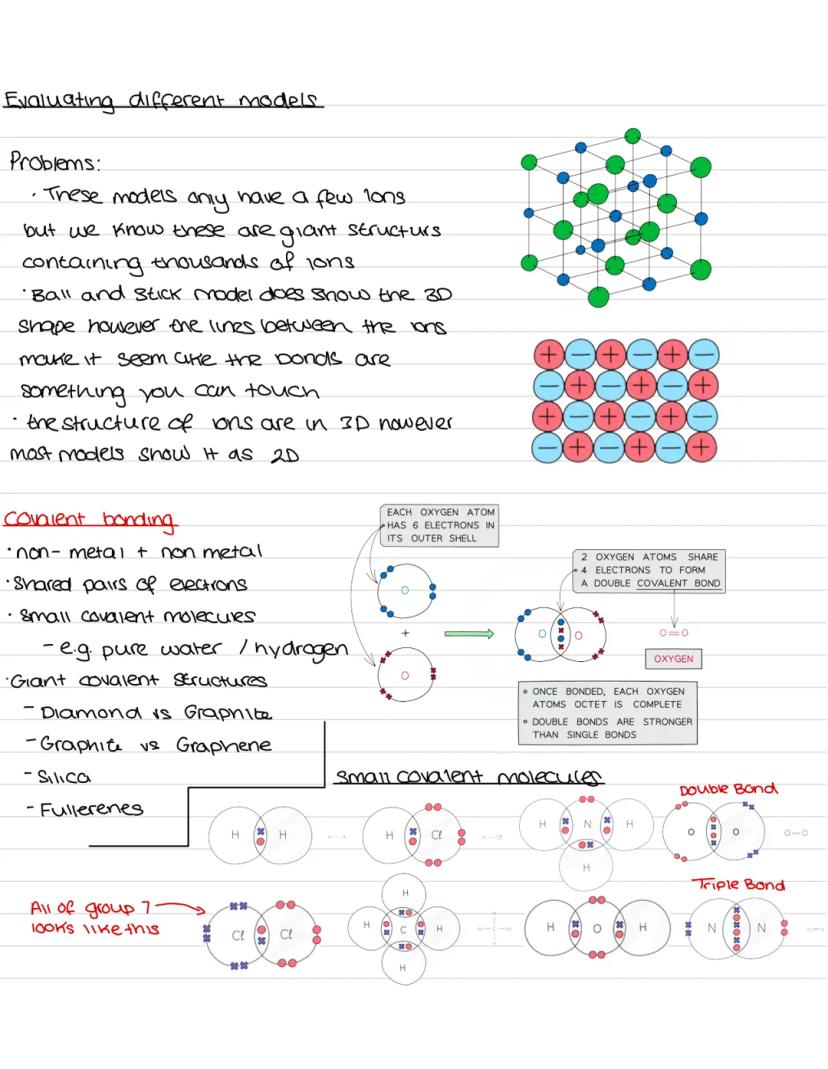 Evaluating different models
Problems:
· These models only have a few ions
but we know these are giant structurs
containing thousands of ions
· Ball and stick model does show the 3D
shape however the lines between the ions
make it seem like the bonds are
something you can touch
· the structure of ions are in 3D however
most models show it as 2D
+ − + − + −
− + − + − +
+ − + − + −
− + − + − +
Covalent bonding
· non-metal + non metal
· Shared pairs of electrons
· Small covalent molecules
- e.g. pure water / hydrogen
· Giant covalent structures
- Diamond vs Graphite
- Graphite vs Graphene
- Silica
- Fullerenes
EACH OXYGEN ATOM
HAS 6 ELECTRONS IN
ITS OUTER SHELL
O
+
O
2 OXYGEN ATOMS SHARE
4 ELECTRONS TO FORM
A DOUBLE COVALENT BOND
O O
O=O
OXYGEN
ONCE BONDED, EACH OXYGEN
ATOMS OCTET IS COMPLETE
DOUBLE BONDS ARE STRONGER
THAN SINGLE BONDS
Small covalent molecules
Double Bond
H H
H Cl
H N H
H
O O
O=O
All of group 7
looks like this
Cl Cl
H
H C H
H
H O H
Triple Bond
N N